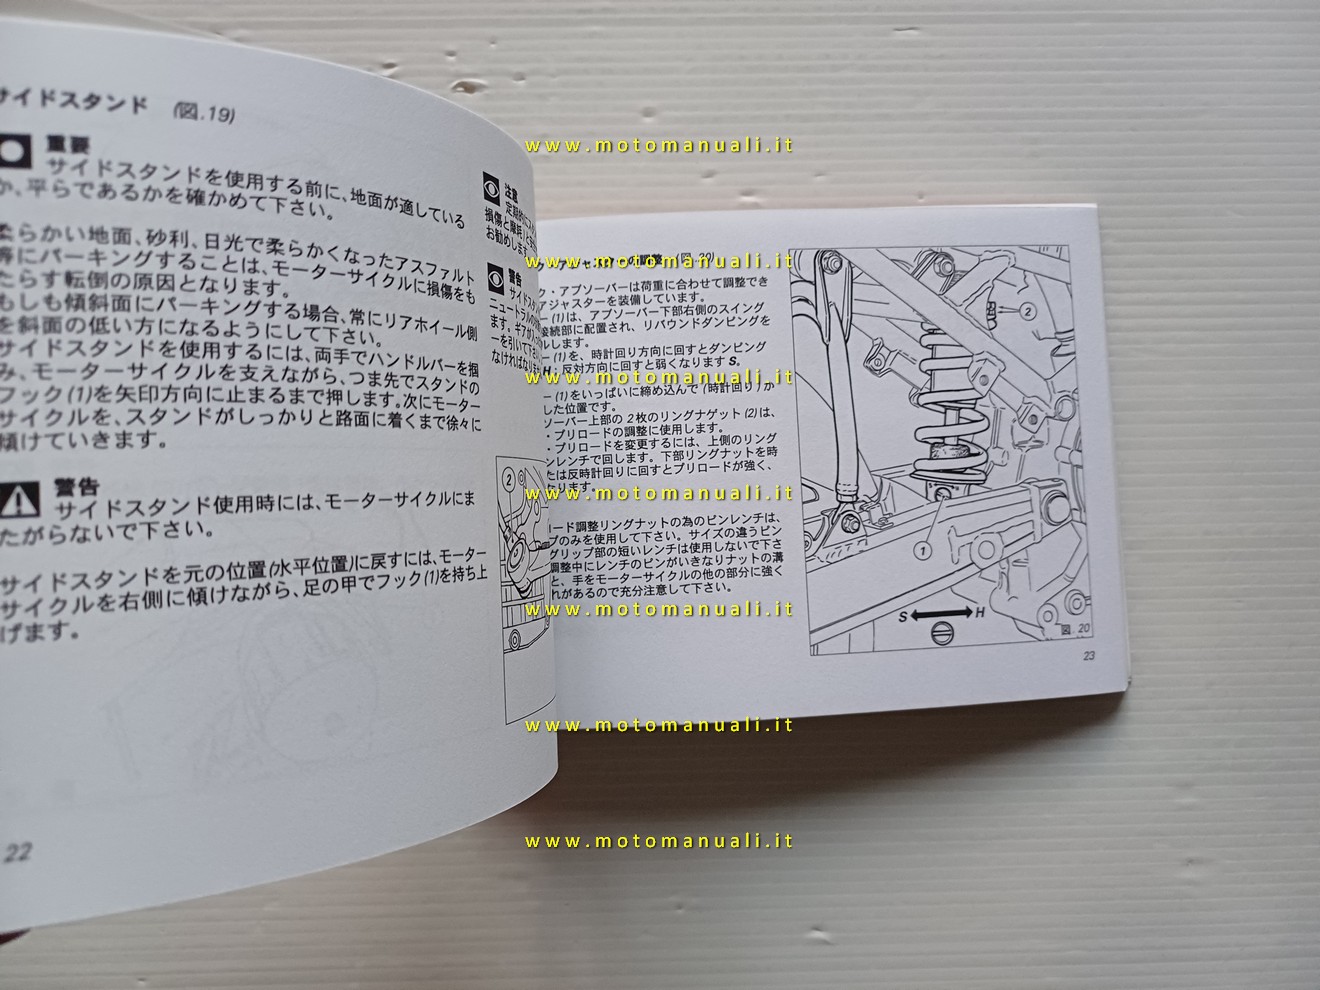 サイドスタンド (図.19)
重要
サイドスタンドを使用する前に、地面が適している
か、平らであるかを確かめて下さい。
柔らかい地面、砂利、日光で柔らかくなったアスファルト
等にパーキングすることは、モーターサイクルに損傷をも
たらす転倒の原因となります。
もしも傾斜面にパーキングする場合、常にリアホイール側
を斜面の低い方になるようにして下さい。
サイドスタンドを使用するには、両手でハンドルバーを掴
み、モーターサイクルを支えながら、つま先でスタンドの
フック(1)を矢印方向に止まるまで押します。次にモーター
サイクルを、スタンドがしっかりと路面に着くまで徐々に
傾けていきます。
警告
サイドスタンド使用時には、モーターサイクルにま
たがらないで下さい。
サイドスタンドを元の位置(水平位置)に戻すには、モーター
サイクルを右側に傾けながら、足の甲でフック(1)を持ち上
げます。
22
注意
定期的に
損傷と摩耗
お勧めします
警告
サイドスタン
ニュートラルの
ます。ギアが
ーを引いて下さ
なければなりませ
2
(図.20)
ク・アブソーバーは荷重に合わせて調整でき
アジャスターを装備しています。
ー(1)は、アブソーバー下部右側のスイング
接続部に配置され、リバウンドダンピングを
ルします。
ー(1)を、時計回り方向に回すとダンピング
H・反対方向に回すと弱くなります S。
ー(1)をいっぱいに締め込んで(時計回り)か
した位置です。
ソーバー上部の2枚のリングナゲット(2)は、
・プリロードの調整に使用します。
・プリロードを変更するには、上側のリング
ンレンチで回します。下部リングナットを時
たは反時計回りに回すとプリロードが強く、
なります。
ロード調整リングナットの為のピンレンチは、
プのみを使用して下さい。サイズの違うピン
グリップ部の短いレンチは使用しないで下さ
調整中にレンチのピンがいきなりナットの溝
と、手をモーターサイクルの他の部分に強く
れがあるので充分注意して下さい。
2
1
S H
図.20
23
www.motomanuali.it
www.motomanuali.it
www.motomanuali.it
www.motomanuali.it
www.motomanuali.it
www.motomanuali.it
www.motomanuali.it